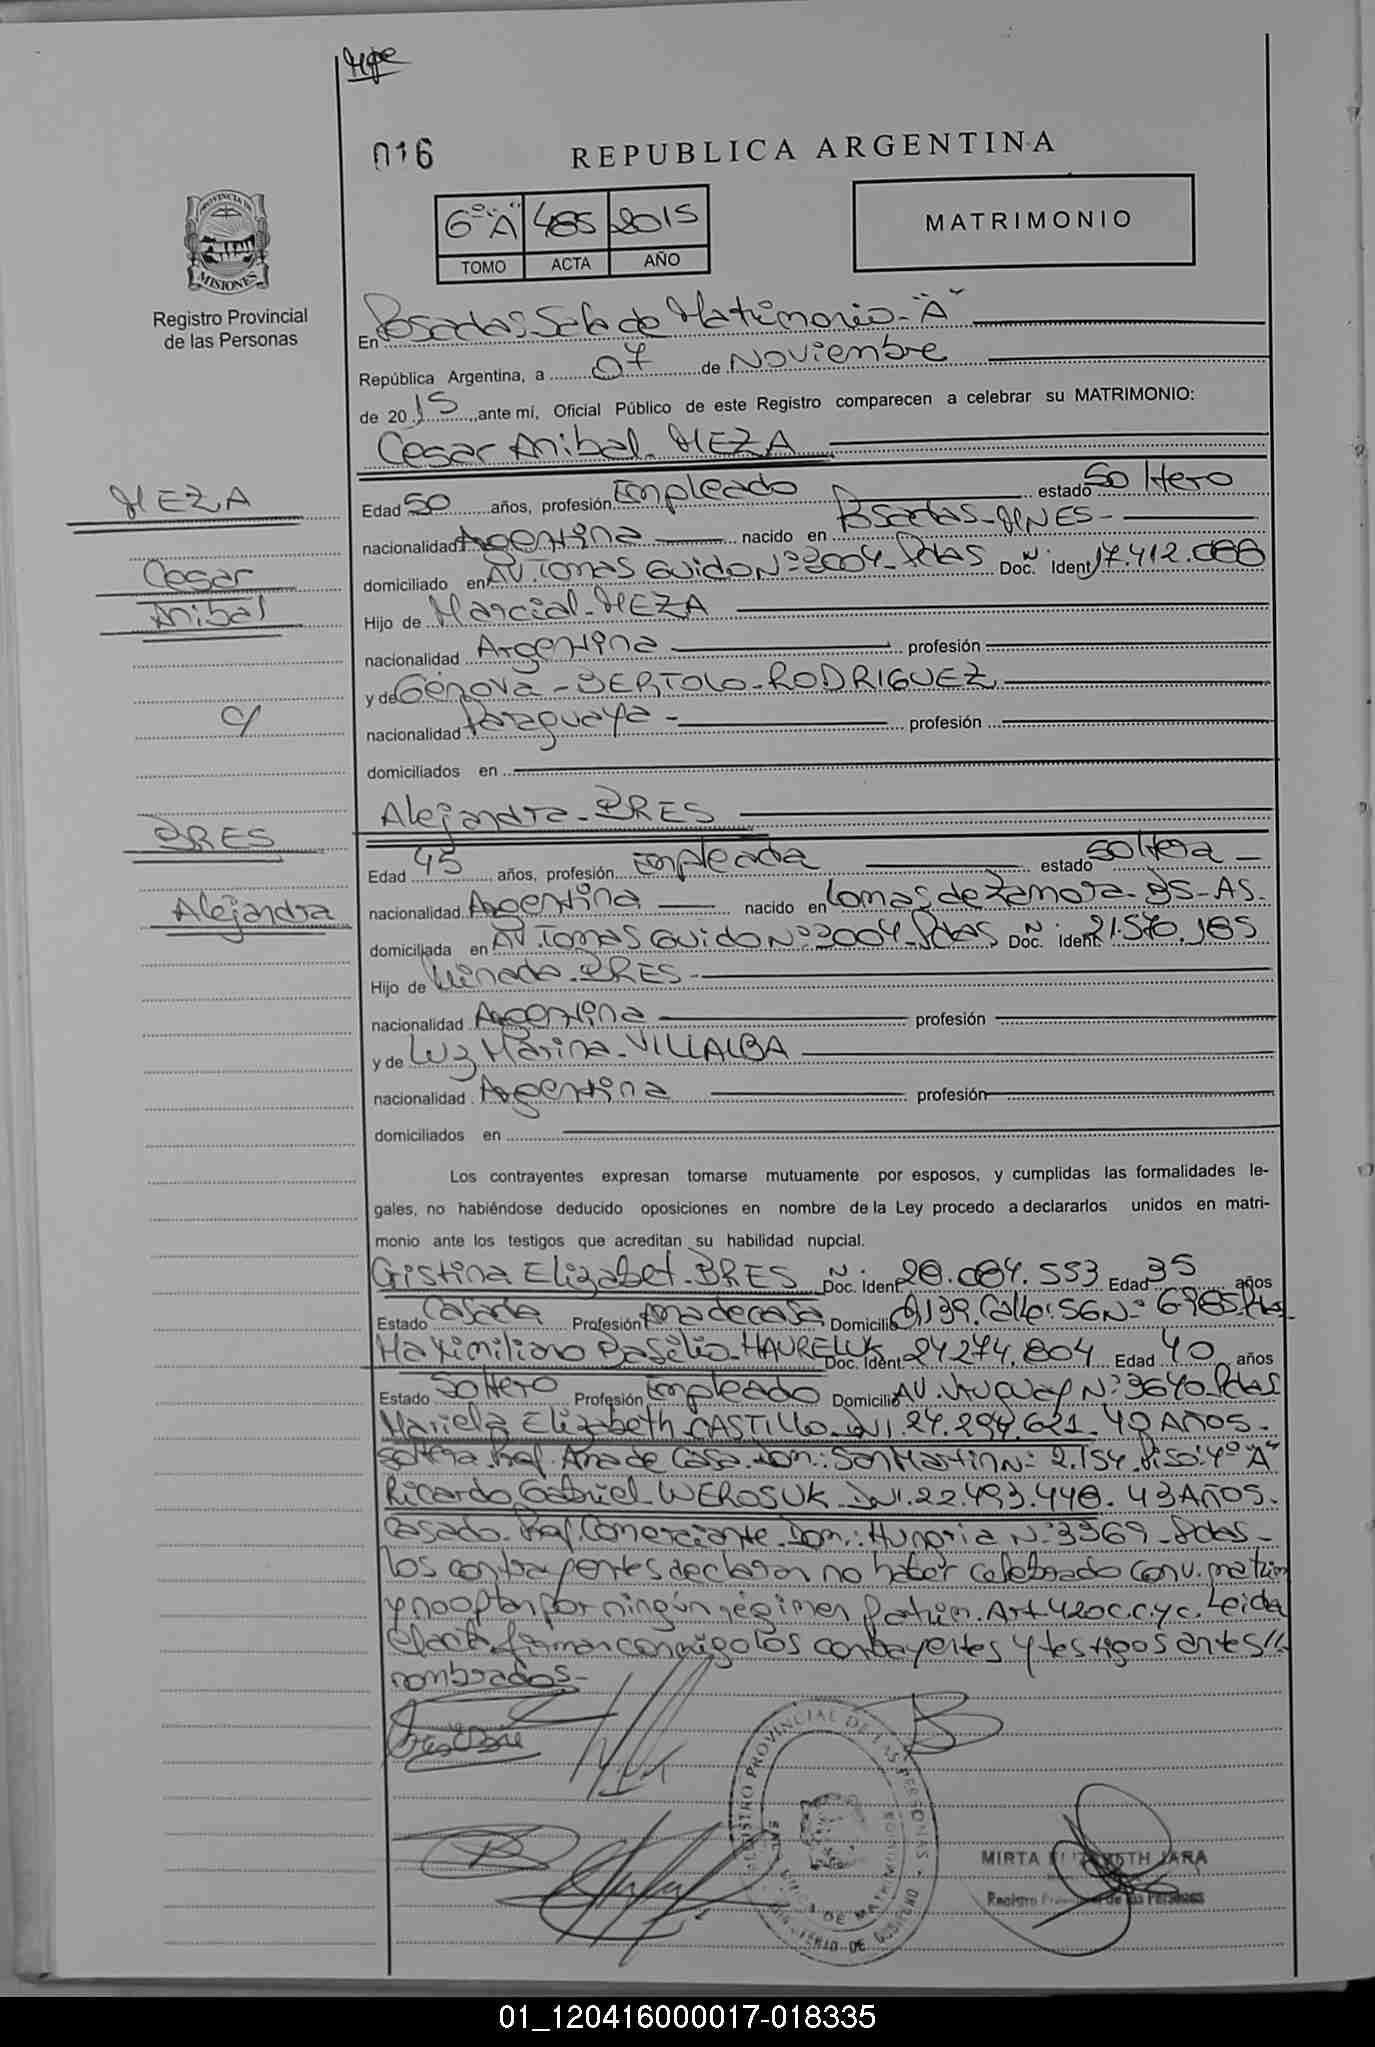 016
REPUBLICA ARGENTINA
6º "A" 485 2015
TOMO ACTA AÑO
MATRIMONIO
PROVINCIA DE MISIONES
Registro Provincial
de las Personas
En Posadas Sala de Matrimonio - "A"
República Argentina, a 07 de Noviembre
de 2015, ante mí, Oficial Público de este Registro comparecen a celebrar su MATRIMONIO:
Cesar Anibal MEZA
MEZA
Cesar
Anibal
c/
BRES
Alejandra
Edad 50 años, profesión Empleado estado Soltero
nacionalidad Argentina nacido en Posadas - MNES -
domiciliado en AV. Tomas Guido Nº 2004 - Pdas Doc. Ident 17.412.088
Hijo de Marcial - MEZA
nacionalidad Argentina profesión
y de Génova - BERTOLO - RODRIGUEZ
nacionalidad Paraguaya - profesión
domiciliados en
Alejandra - BRES
Edad 45 años, profesión Empleada estado Soltera -
nacionalidad Argentina nacido en Lomas de Zamora - BS - AS.
domiciliada en AV. Tomas Guido Nº 2004 - Pdas Doc. Ident 21.570.185
Hijo de BRES -
nacionalidad Argentina profesión
y de Luz Marina - VILLALBA
nacionalidad Argentina profesión
domiciliados en
Los contrayentes expresan tomarse mutuamente por esposos, y cumplidas las formalidades le-
gales, no habiéndose deducido oposiciones en nombre de la Ley procedo a declararlos unidos en matri-
monio ante los testigos que acreditan su habilidad nupcial.
Cristina Elizabet - BRES Doc. Ident 28.084.553 Edad 35 años
Estado Casada Profesión Ama de casa Domicilio Ch 139. Calle: 56 Nº 6985 Pdas
Maximiliano Basilio - HAURELUK Doc. Ident 24274.804 Edad 40 años
Estado Soltero Profesión Empleado Domicilio AV. Uruguay Nº 3640 - Pdas
Mariela Elizabeth CASTILLO - DNI. 24.294.621 - 40 AÑOS -
Soltera. Prof. Ama de Casa. Dom.: San Martin Nº 2.154. Piso: 4º "A"
Ricardo Gabriel - WEROSUK - DNI. 22.493.448. 43 AÑOS -
Casado - Prof. Comerciante. Dom.: Hungria Nº 3369 - Pdas -
los contrayentes declaran no haber celebrado conv. matrim
y no optan por ningún régimen patrim. Art 420 C.C. y C. Leida
el acta firman conmigo los contrayentes y testigos antes //
nombrados -
REGISTRO PROVINCIAL DE LAS PERSONAS
MINISTERIO DE GOBIERNO
MIRTA ELIZABETH JARA
Registro Provincial de las Personas
01_120416000017-018335